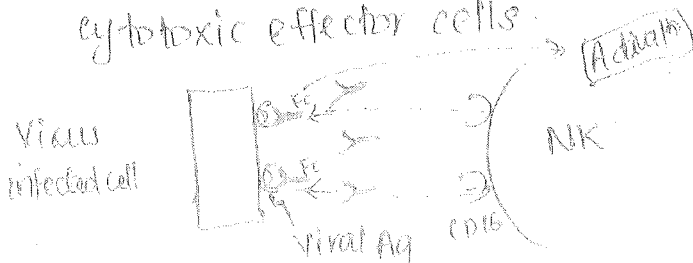 cytotoxic effector cells.
[Activatn]
Fc
Virus
infected cell
NK
Fc
Viral Ag
CD16